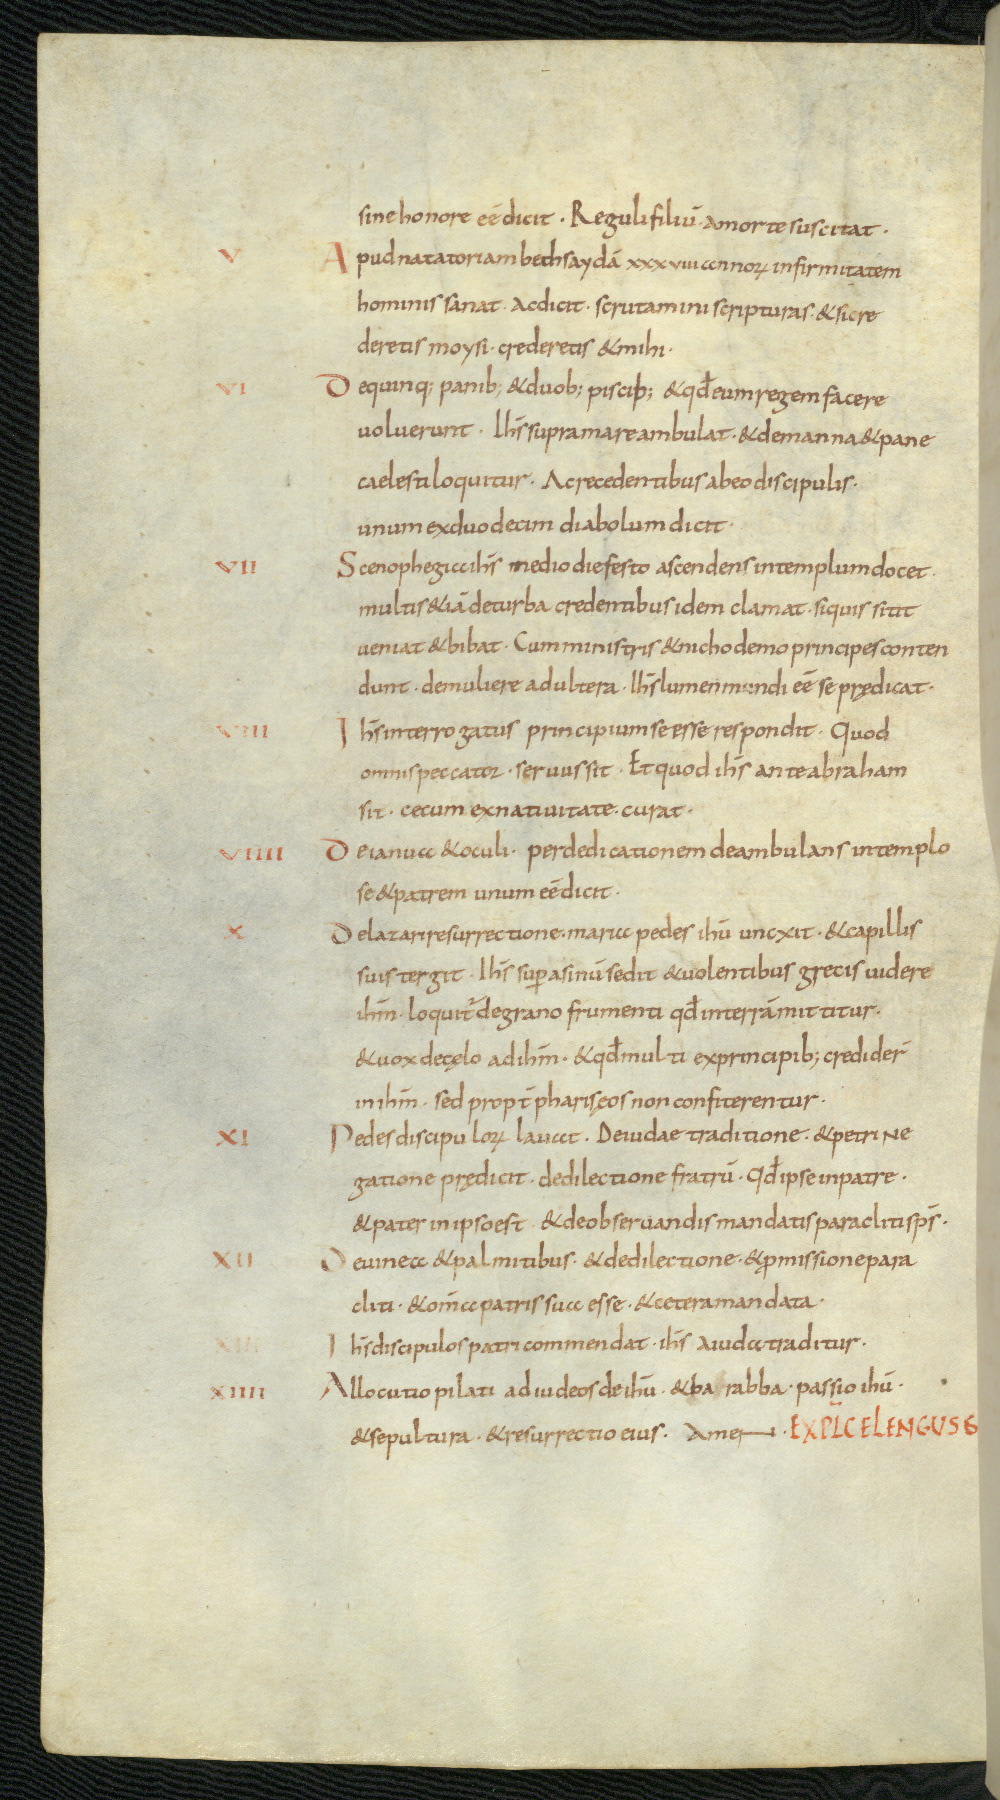 sine honore eē dicit . Reguli filiū amorte suscitat .
V Apud natatoriam bethsaydā xxxviii annoꝝ infirmitatem
hominis sanat . Ac dicit . scrutamini scripturas . & si cre
deretis moysi . crederetis & mihi .
VI De quinq; panib; & duob; piscib; & qđ eum regem facere
uoluerunt . Ihs̄ supra mare ambulat . & de manna & pane
caelesti loquitur . Ac recedentibus ab eo discipulis .
unum ex duodecim diabolum dicit .
VII Scenophegia ihs̄ medio die festo ascendens in templum docet .
multis &iā de turba credentibus idem clamat . siquis sitit
ueniat & bibat . Cum ministris & nichodemo principes conten
dunt . de muliere adultera . Ihs̄ lumen mundi eē se prędicat .
VIII Ihs̄ interrogatus principium se esse respondit . Quod
omnis peccator . seruus sit . Et quod ihs̄ ante abraham
sit . cecum ex natiuitate . curat .
VIIII De ianua & oculi . per dedicationem deambulans in templo
se & patrem unum eē dicit .
X De lazari resurrectione . maria pedes ihū uncxit . & capillis
suis tergit . Ihs̄ suꝑ asinū sedit & uolentibus grecis uidere
ihm̄ . loquit̄ de grano frumenti qđ in terrā mittitur .
& uox de cęlo ad ihm̄ . & qđ multi ex principib; credider̄
in ihm̄ . sed propt̄ pharisęos non confiterentur .
XI Pedes discipuloꝝ lauat . De iudae traditione . & petri ne
gatione prędicit . de dilectione fratrū . Qđ ipse in patre .
& pater in ipso est . & de obseruandis mandatis paracliti sp̄s .
XII De uinea & palmitibus . & de dilectione . & ꝓmissione para
cliti . & om̄ia patris sua esse . & cetera mandata .
XIII Ihs̄ discipulos patri commendat . ihs̄ a iuda traditur .
XIIII Allocutio pilati ad iudeos de ihū . & ba rabba . passio ihū .
& sepultura . & resurrectio eius . Amen . EXPLC ELENGUS